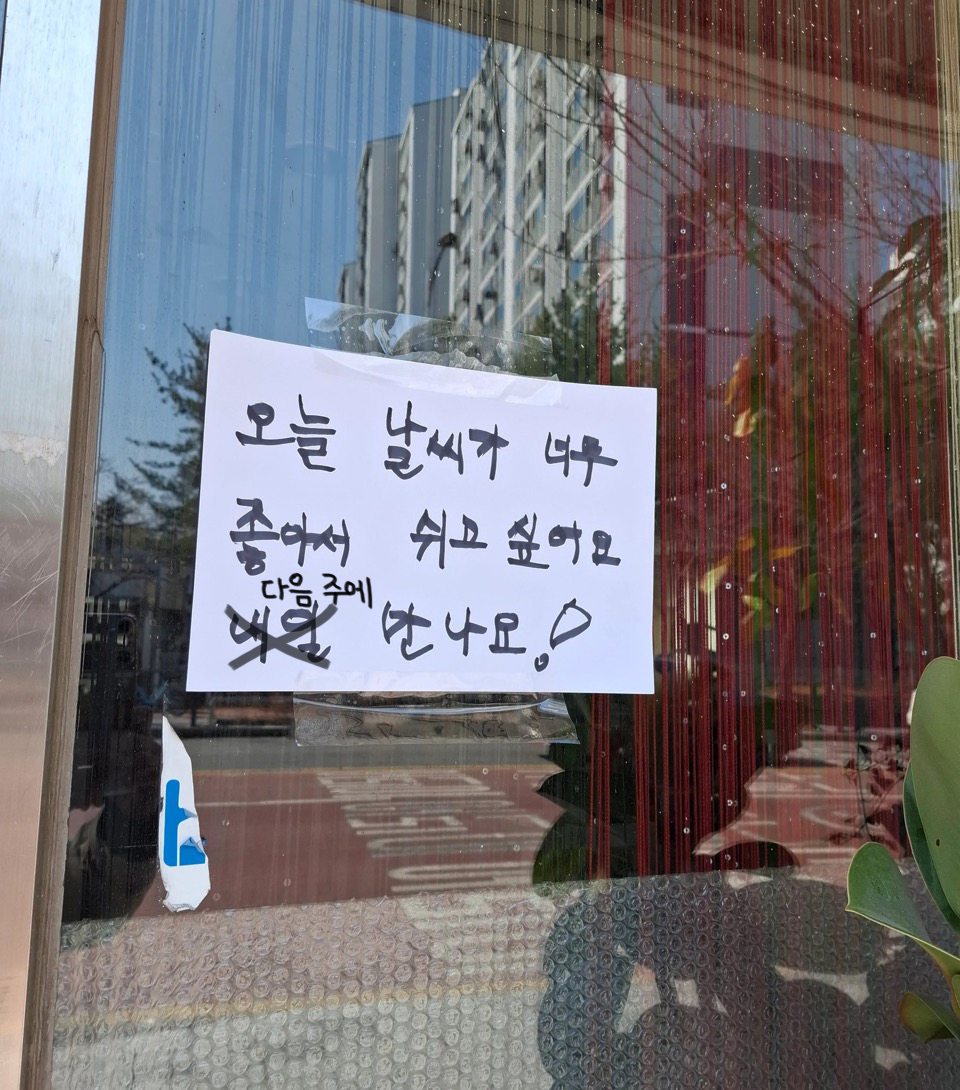 오늘 날씨가 너무
좋아서 쉬고 싶어요
다음 주에
내일 만나요!